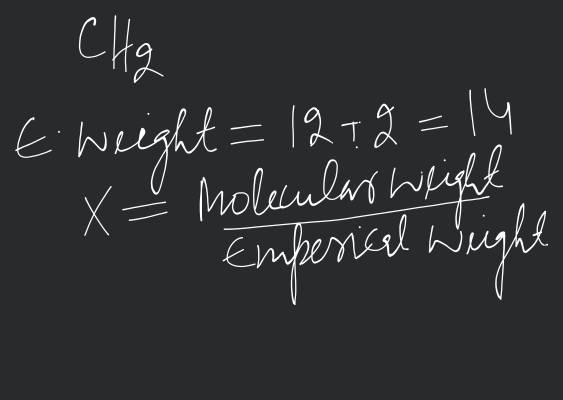 CH2
E. Weight = 12 + 2 = 14
X = Molecular Weight
Emperical Weight